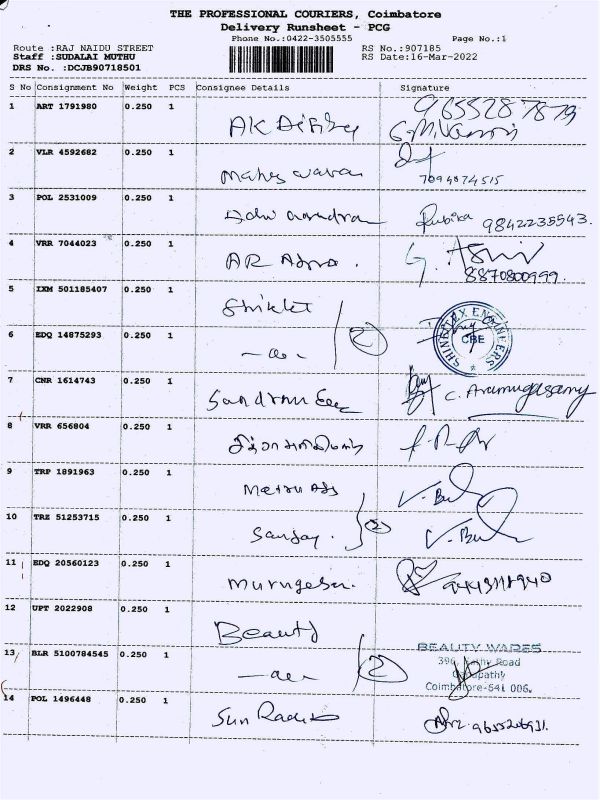 THE PROFESSIONAL COURIERS, Coimbatore
Delivery Runsheet - PCG
Phone No.:0422-3505555 Page No.:1
Route :RAJ NAIDU STREET RS No.:907185
Staff :SUDALAI MUTHU RS Date:16-Mar-2022
DRS No. :DCJB90718501
S No Consignment No Weight PCS Consignee Details Signature
1 ART 1791980 0.250 1 AK 9655287879
2 VLR 4592682 0.250 1 Maheswaran
7094874515
3 POL 2531009 0.250 1 Rubika 9842235543.
4 VRR 7044023 0.250 1 AR
8870800999.
5 IXM 501185407 0.250 1
SHINEFLEX ENGINEERS
CBE
6 EDQ 14875293 0.250 1 -do- 2
7 CNR 1614743 0.250 1 C. Arumugasamy
8 VRR 656804 0.250 1
9 TRP 1891963 0.250 1
10 TRZ 51253715 0.250 1 Sanjay. 2
11 EDQ 20560123 0.250 1 Murugesan.
12 UPT 2022908 0.250 1 Beauty
13 BLR 5100784545 0.250 1 -do- 2
BEAUTY WARES
396, Sathy Road
Ganapathy
Coimbatore-641 006.
14 POL 1496448 0.250 1 Sun